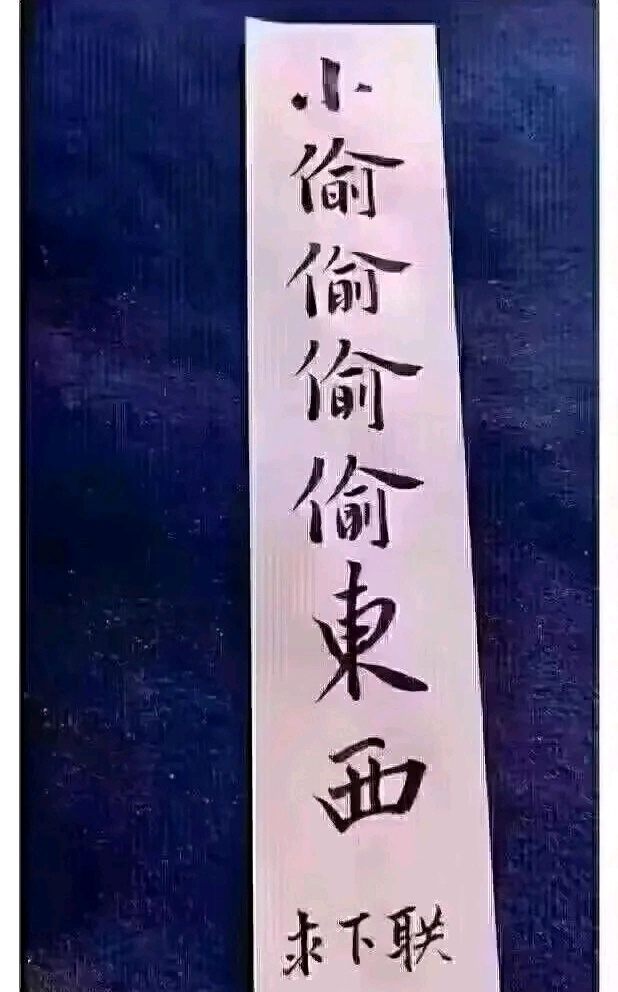 小偷偷偷偷東西
求下联